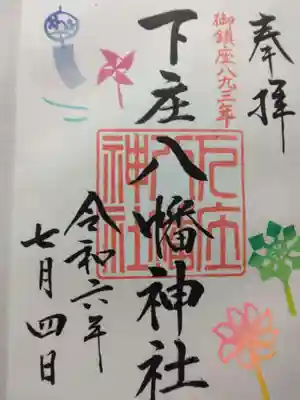 奉拝
御鎮座八九三年
下庄八幡神社
下庄八幡神社
令和六年
七月四日